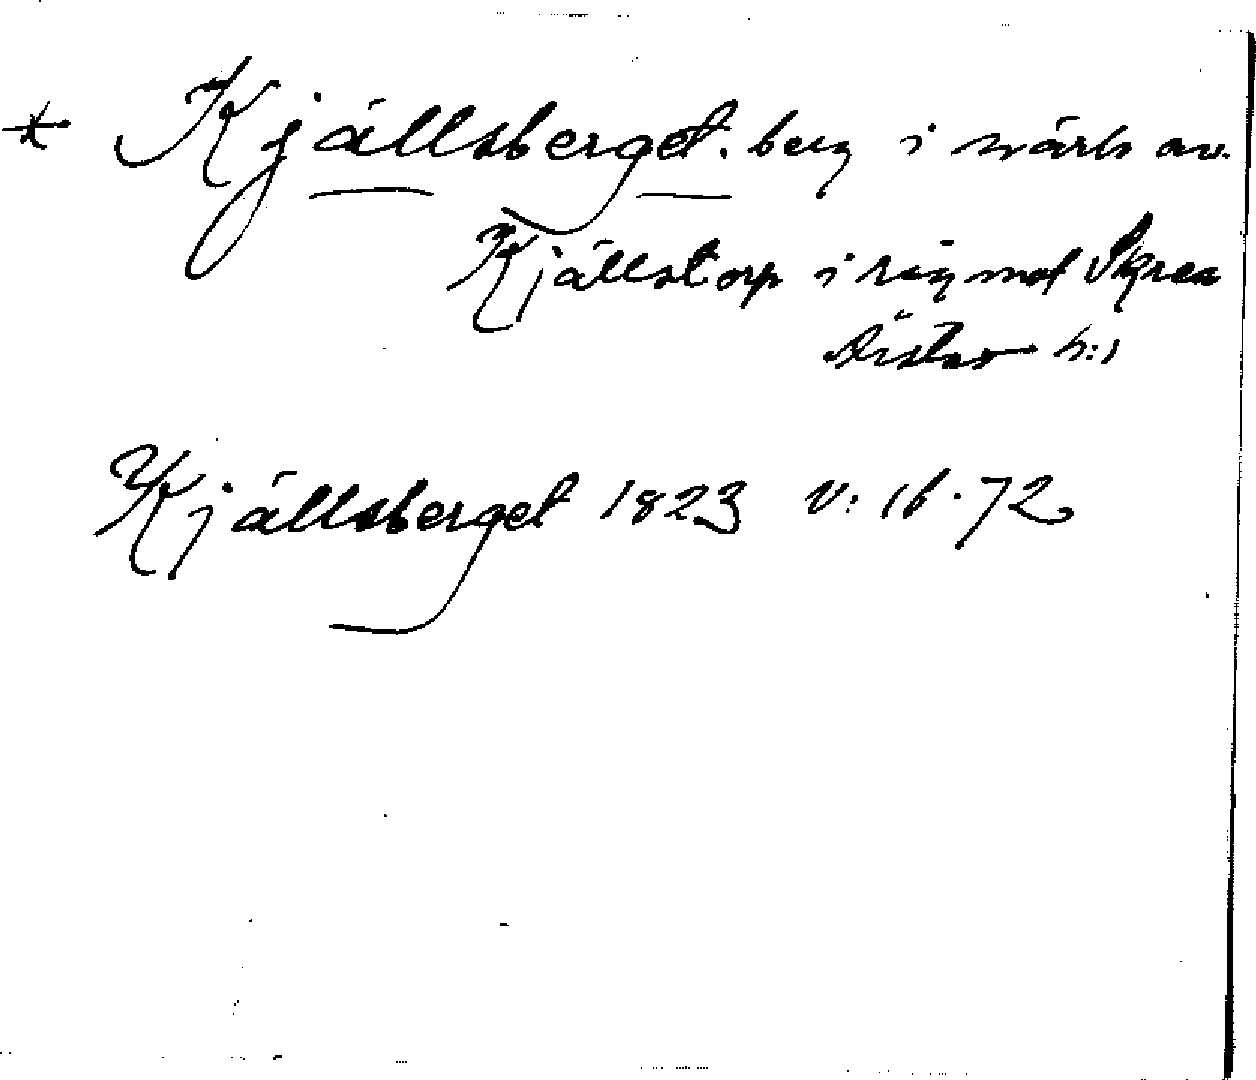 * Kjällsberget. berg i närh av.
Kjällstorp i rig mot Skrea
Årstad h:s
Kjällsberget 1823 V: 16.72